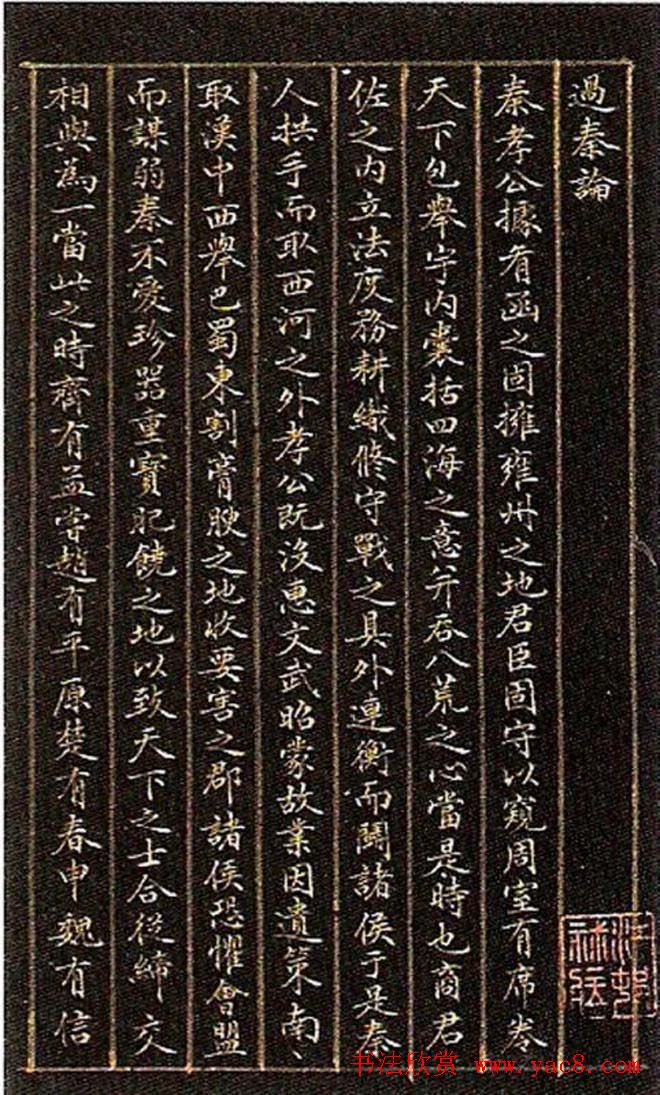 過秦論
秦孝公據肴函之固擁雍州之地君臣固守以窺周室有席卷
天下包舉宇内囊括四海之意并吞八荒之心當是時也商君
佐之内立法度務耕織修守戰之具外連衡而鬭諸侯于是秦
人拱手而取西河之外孝公既没惠文武昭蒙故業因遺策南
取漢中西舉巴蜀東割膏腴之地收要害之郡諸侯恐懼會盟
而謀弱秦不愛珍器重寶肥饒之地以致天下之士合從締交
相與為一當此之時齊有孟嘗趙有平原楚有春申魏有信
书法欣赏 www.yac8.com